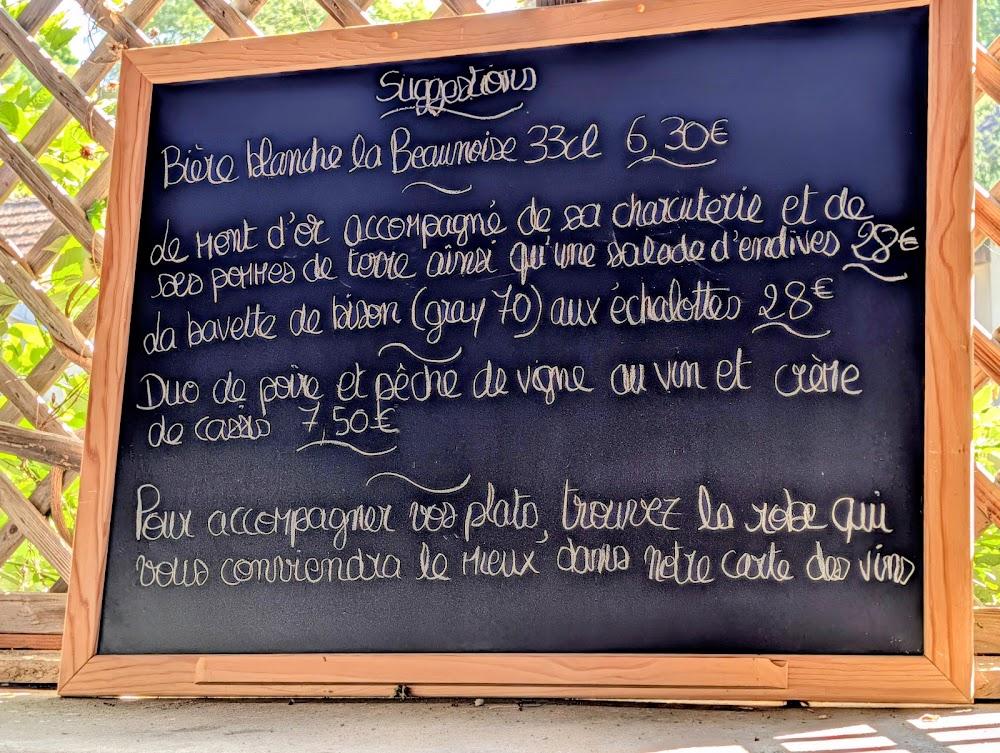 Suggestions
Bière blanche la Beaunoise 33cl 6,30€
Le Mont d'or accompagné de sa charcuterie et de
ses pommes de terre ainsi qu'une salade d'endives 28€
La bavette de bison (gray 70) aux échalottes 28€
Duo de poire et pêche de vigne au vin et crème
de cassis 7,50€
Pour accompagner vos plats, trouvez la robe qui
vous conviendra le mieux dans notre carte des vins